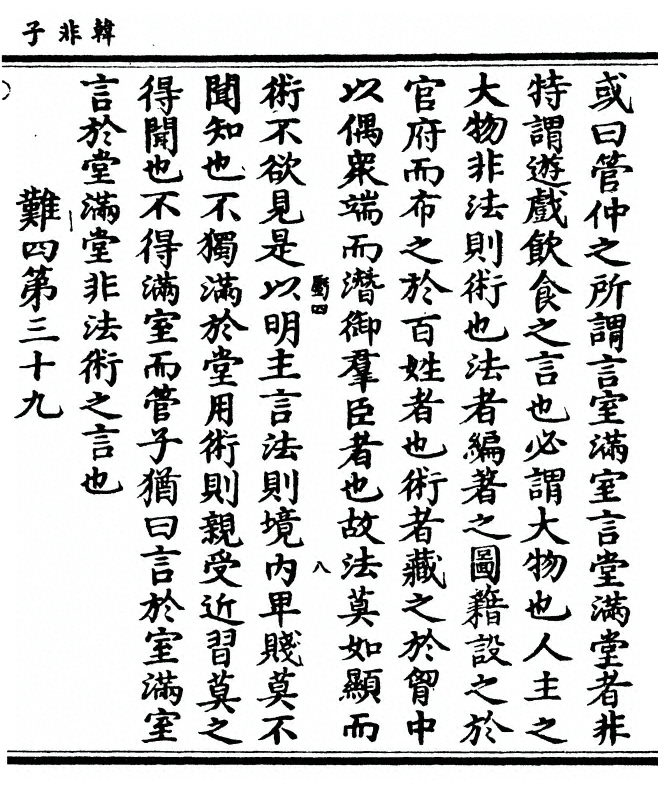 韓非子
或曰管仲之所謂言室滿室言堂滿堂者非
特謂遊戲飲食之言也必謂大物也人主之
大物非法則術也法者編著之圖籍設之於
官府而布之於百姓者也術者藏之於胷中
以偶衆端而潛御羣臣者也故法莫如顯而
八
術不欲見是以明主言法則境內卑賤莫不
聞知也不獨滿於堂用術則親愛近習莫之
得聞也不得滿室而管子猶曰言於室滿室
言於堂滿堂非法術之言也
難四第三十九